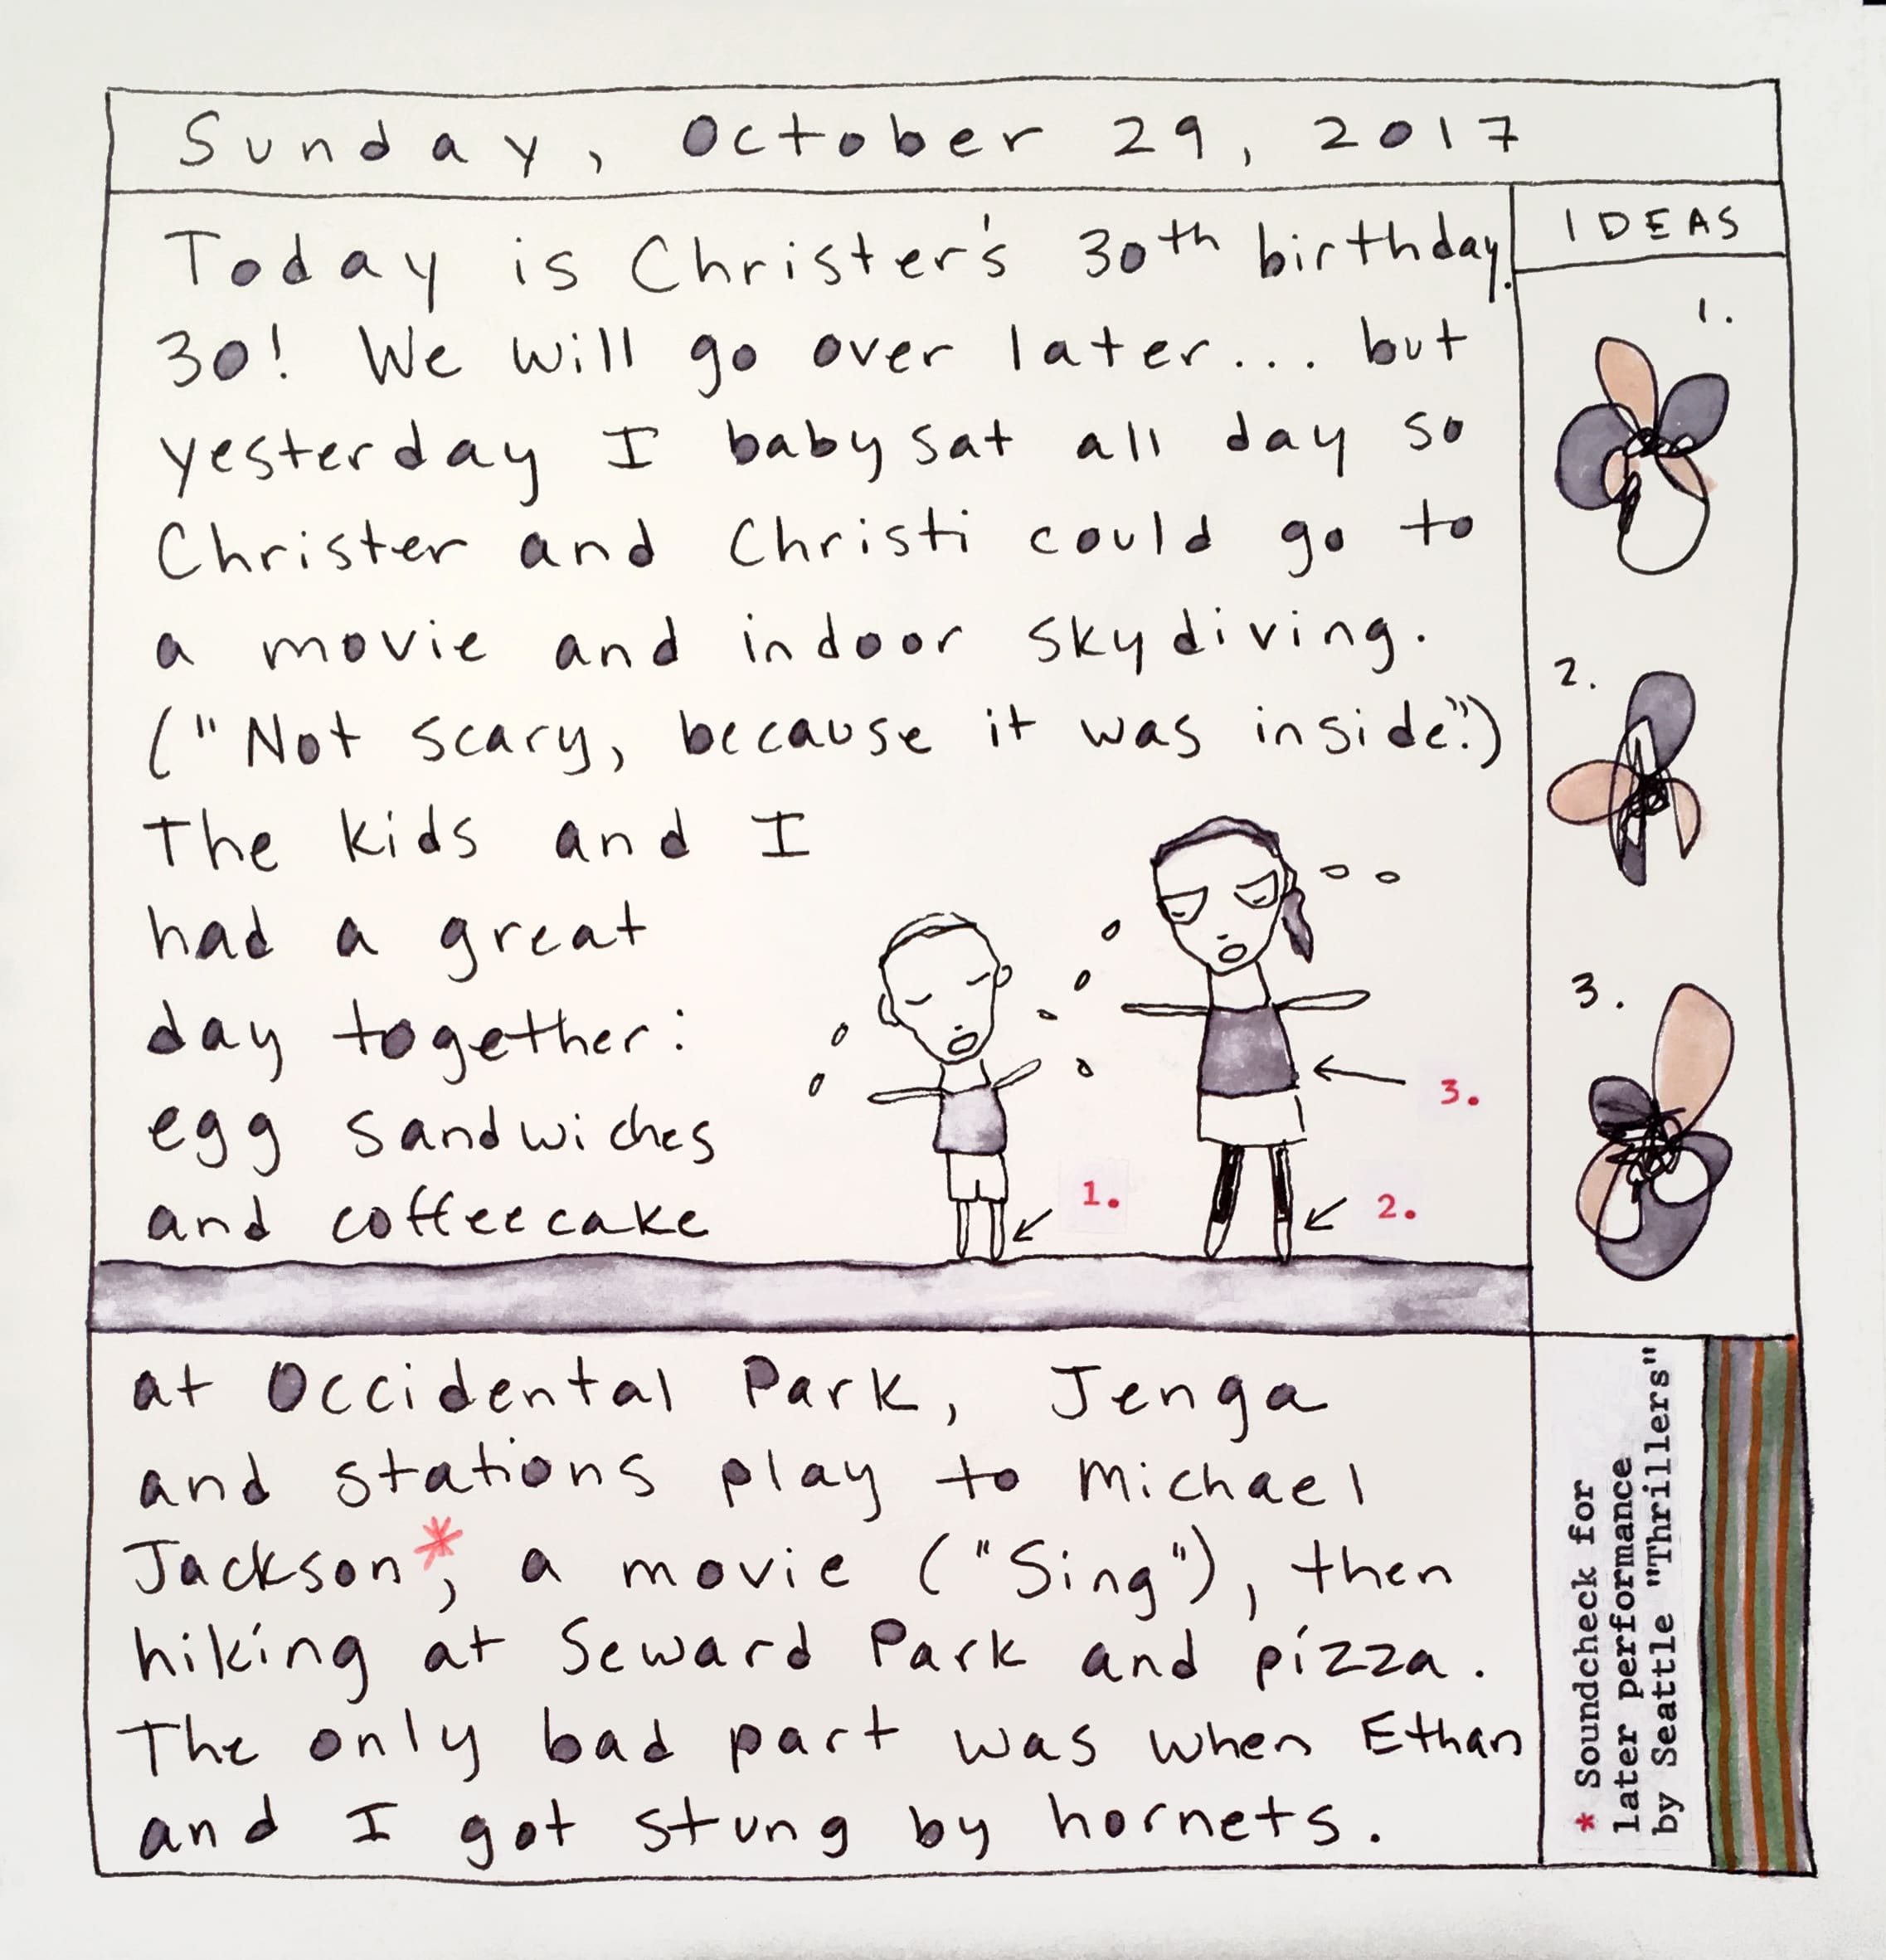 Sunday, October 29, 2017
Today is Christer's 30th birthday.
30! We will go over later... but
yesterday I babysat all day so
Christer and Christi could go to
a movie and indoor skydiving.
("Not scary, because it was inside.")
The kids and I
had a great
day together:
egg sandwiches
and coffeecake
1.
2.
3.
at Occidental Park, Jenga
and stations play to Michael
Jackson*, a movie ("Sing"), then
hiking at Seward Park and pizza.
The only bad part was when Ethan
and I got stung by hornets.
IDEAS
1.
2.
3.
* Soundcheck for
later performance
by Seattle "Thrillers"